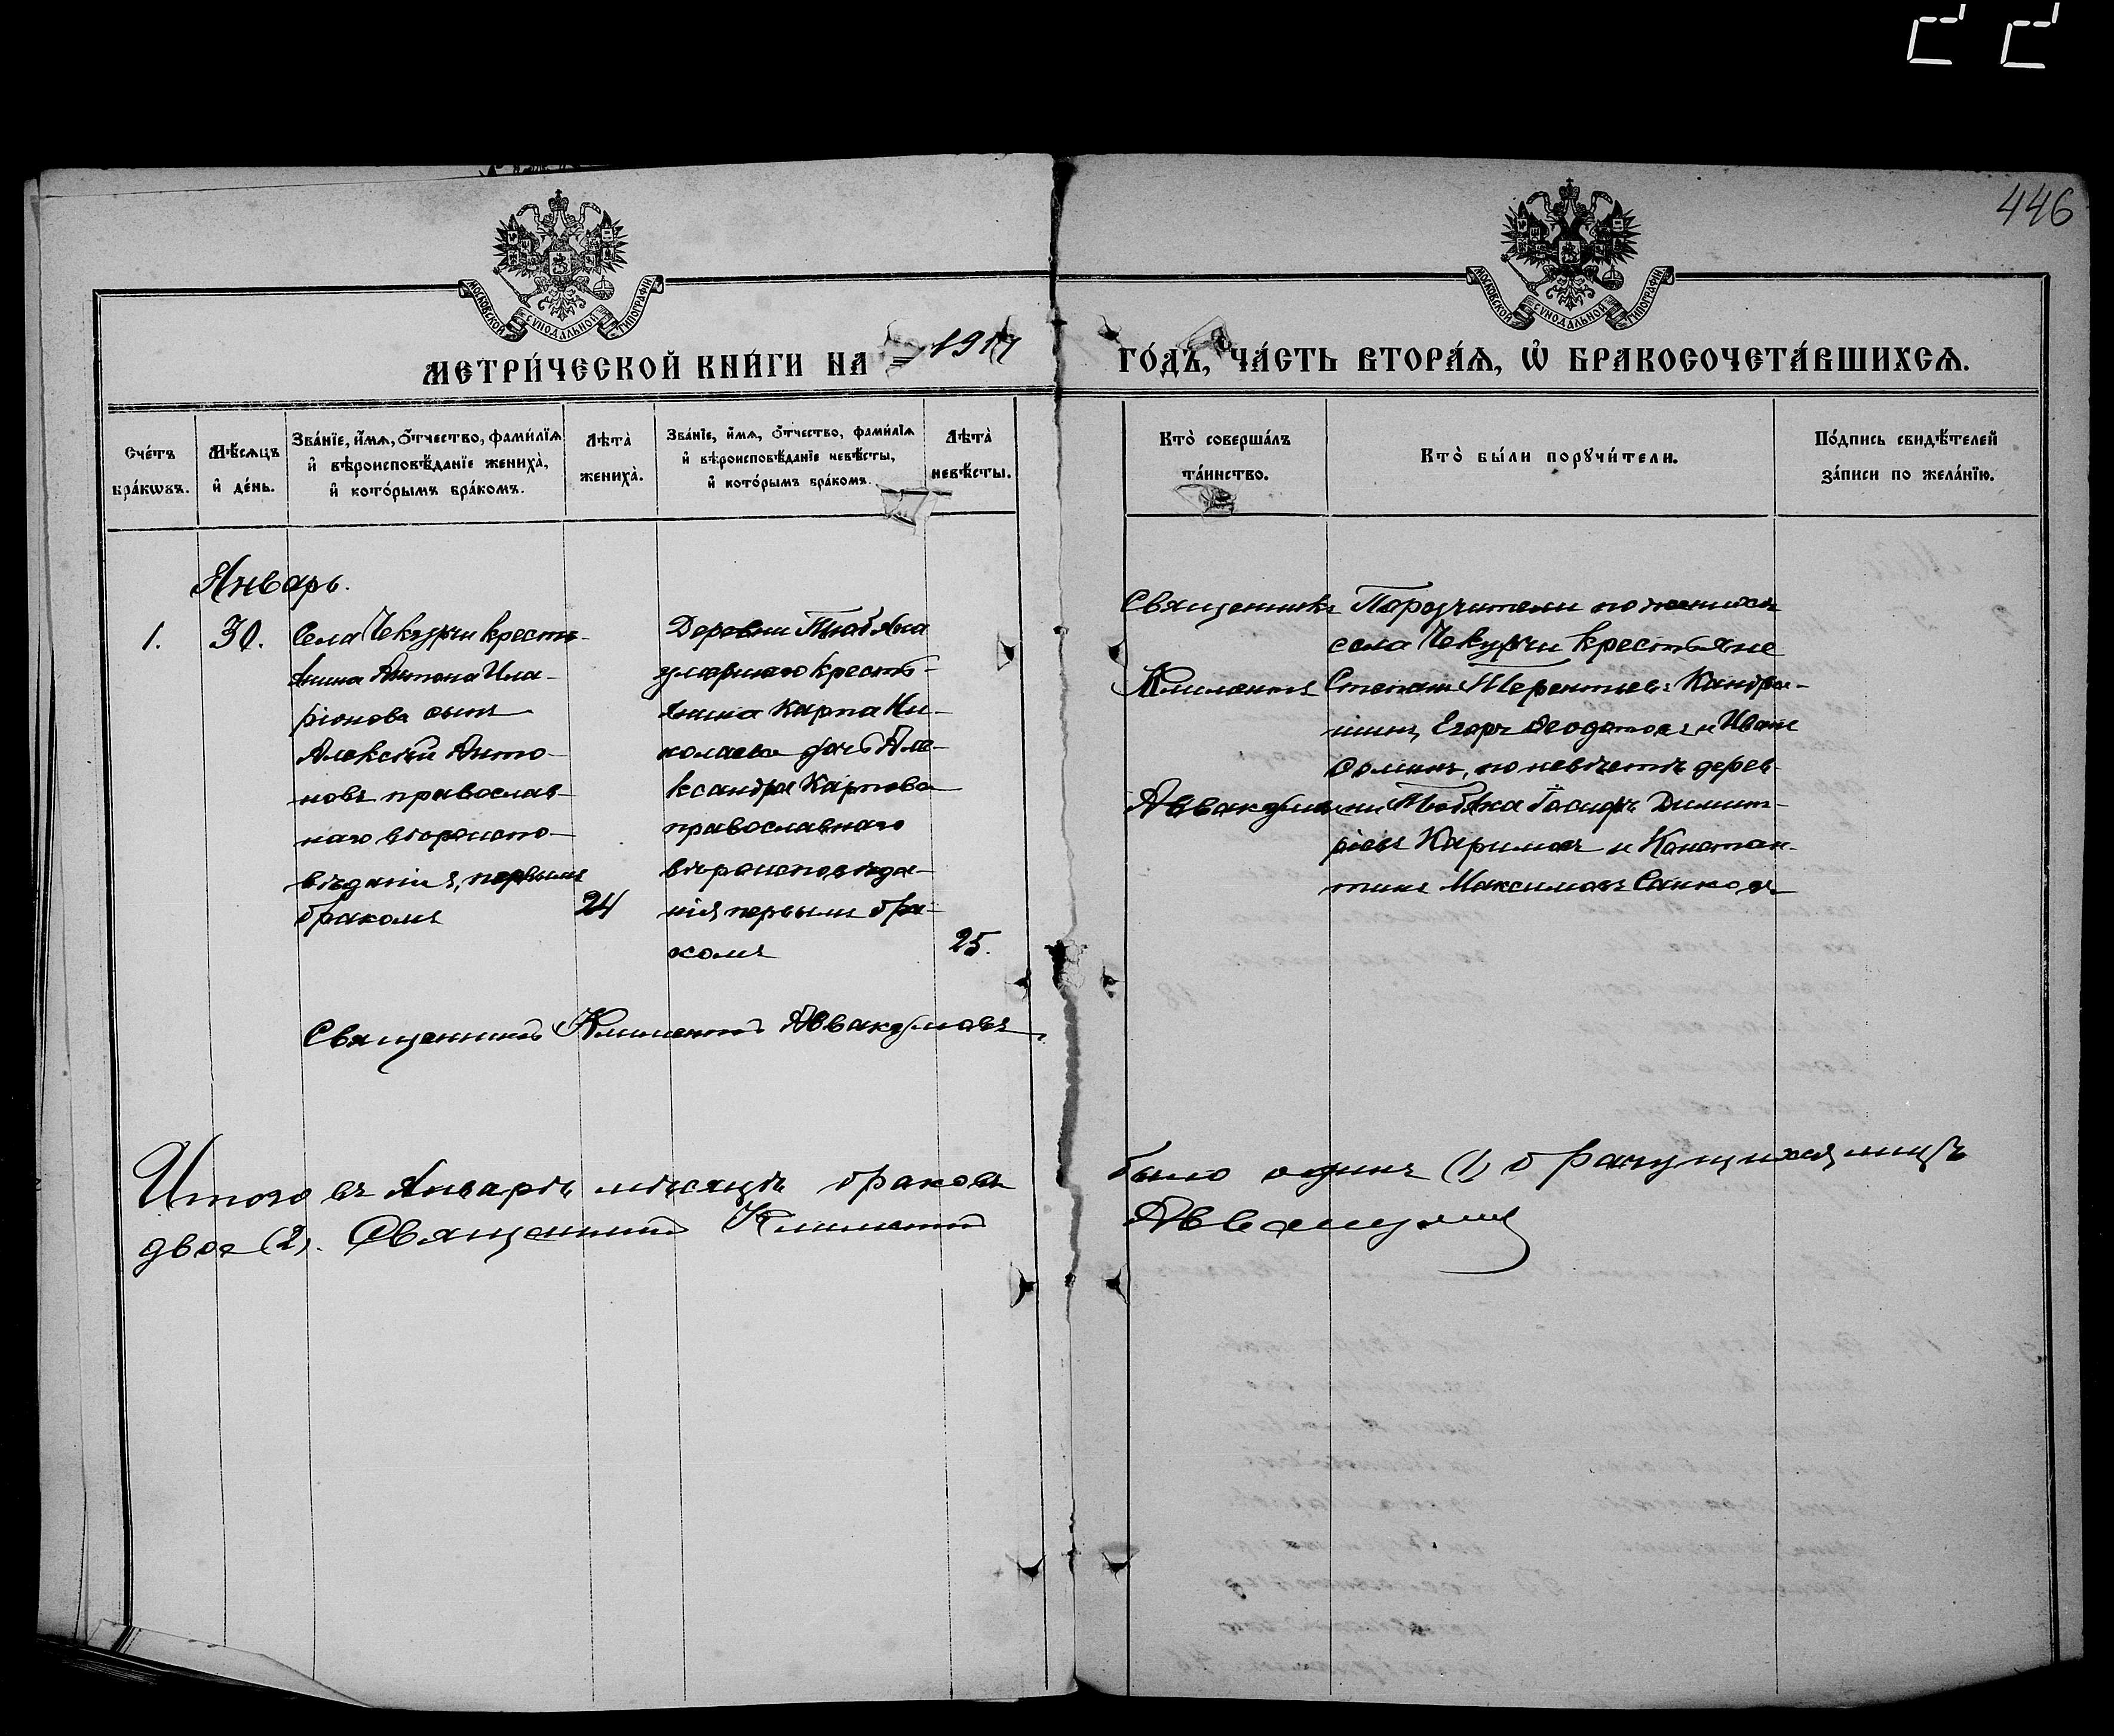 446
МОСКОВСКОЙ СѴНОДАЛЬНОЙ ТИПОГРАФІИ
МОСКОВСКОЙ СѴНОДАЛЬНОЙ ТИПОГРАФІИ
МЕТРИ́ЧЕСКОЙ КНИ́ГИ НА 1917 ГО́ДЪ, ЧА́СТЬ ВТОРА́Ѧ, Ѡ҆ БРАКОСОЧЕТА́ВШИХСѦ.
Сче́тъ бра́кѡвъ.
Мѣ́сѧцъ и҆ де́нь.
Зва́нїе, и҆́мѧ, ѻ҆́тчество, фами́лїѧ
и҆ вѣроисповѣ́данїе жениха̀,
и҆ кото́рымъ бра́комъ.
Лѣта̀ жениха̀.
Зва́нїе, и҆́мѧ, ѻ҆́тчество, фами́лїѧ
и҆ вѣроисповѣ́данїе невѣ́сты,
и҆ кото́рымъ бра́комъ.
Лѣта̀ невѣ́сты.
Кто̀ соверша́лъ
та́инство.
Кто̀ бы́ли порꙋчи́тели.
По́дпись свидѣ́телей
за́писи по жела́нїю.
Январь.
1.
30.
Села Чекурчи кресть-
янина Антона Ила-
ріонова сынъ
Алексѣй Анто-
новъ православ-
наго вѣроиспо-
вѣданія, первымъ
бракомъ
24
Деревни
умершаго кресть-
янина Карпа Ни-
колаева дочь Але-
ксандра Карпова
православнаго
вѣроисповѣда-
нія первымъ бра-
комъ
25.
Священникъ
Климентъ
Аввакумовъ
Поручители по женихѣ
села Чекурчи крестьяне
Степанъ Терентьевъ Кондра-
шинъ, Егоръ Ѳеодотовъ и Иванъ
Ѳоминъ, по невѣстѣ дерев-
ни Іосифъ Димит-
ріевъ Каримовъ и Констан-
тинъ Максимовъ Санковъ
Священникъ Климентъ Аввакумовъ
Итого въ Январѣ мѣсяцѣ браковъ было одинъ (1) брачущихся лицъ
двое (2). Священникъ Климентъ Аввакумовъ